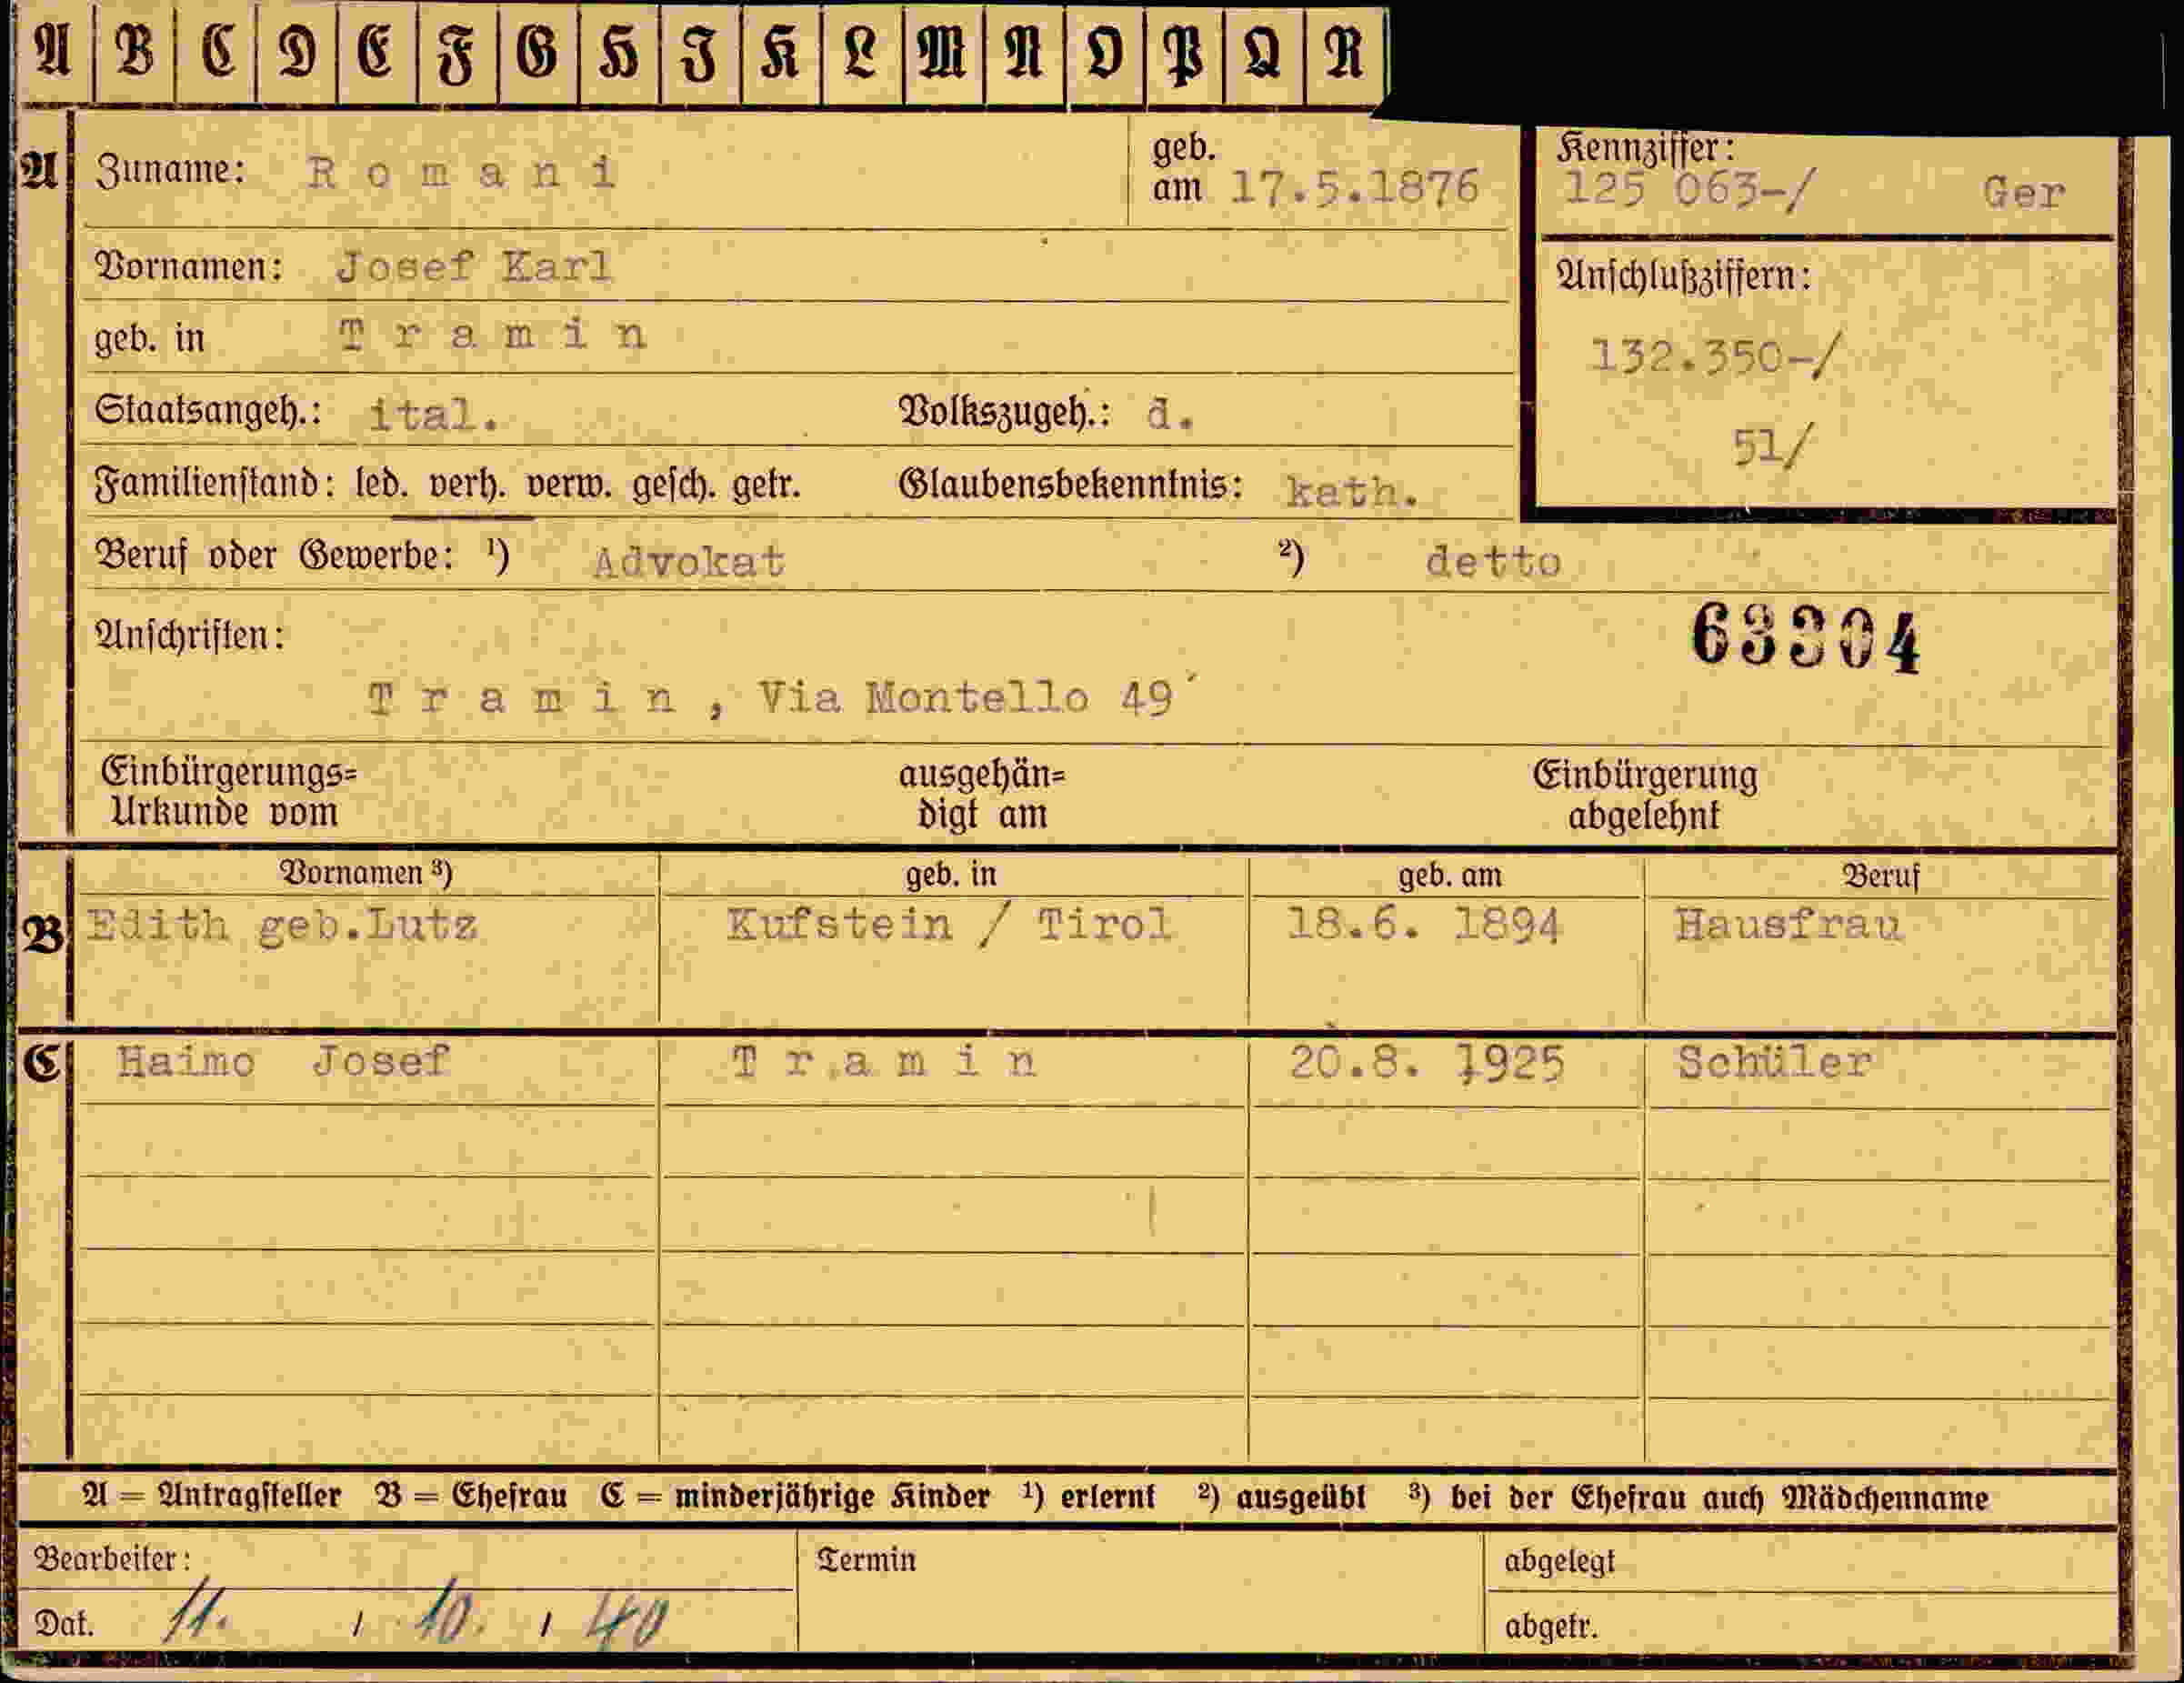 A B C D E F G H I K L M N O P Q R
A Zuname: Romani geb. am 17.5.1876 Kennziffer: 125 063-/ Ger
Vornamen: Josef Karl Anschlußziffern:
geb. in Tramin 132.350-/
Staatsangeh.: ital. Volkszugeh.: d. 51/
Familienstand: led. verh. verw. gesch. getr. Glaubensbekenntnis: kath.
Beruf oder Gewerbe: ¹) Advokat ²) detto
Anschriften: 63304
Tramin, Via Montello 49
Einbürgerungs= ausgehän= Einbürgerung
Urkunde vom digt am abgelehnt
Vornamen ³) geb. in geb. am Beruf
B Edith geb.Lutz Kufstein / Tirol 18.6. 1894 Hausfrau
C Haimo Josef Tramin 20.8. 1925 Schüler
A = Antragsteller B = Ehefrau C = minderjährige Kinder ¹) erlernt ²) ausgeübt ³) bei der Ehefrau auch Mädchenname
Bearbeiter: Termin abgelegt
Dat. 11. / 10. / 40 abgetr.